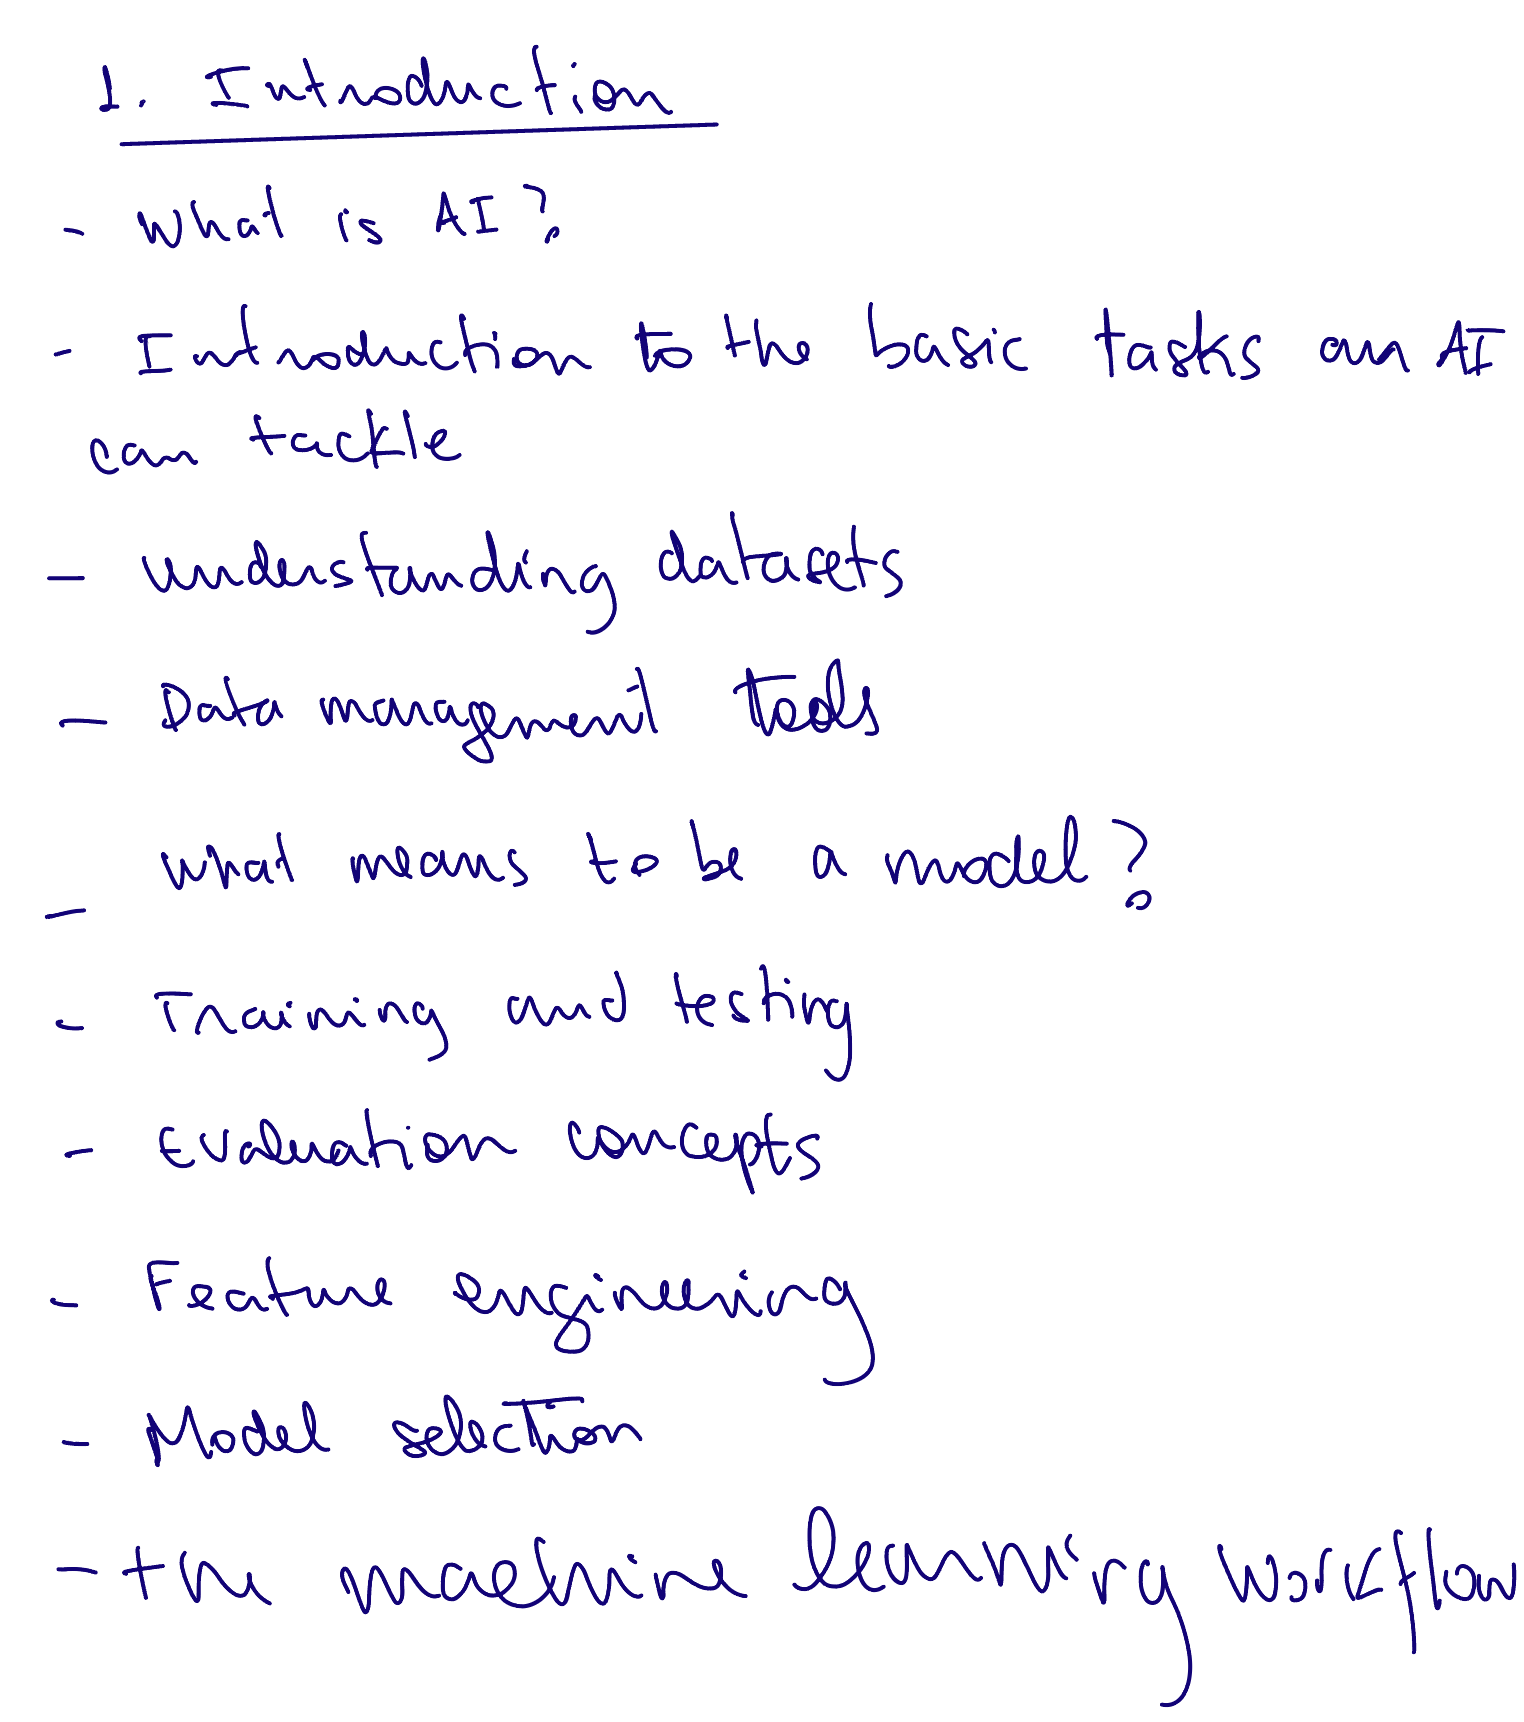 1. Introduction
- What is AI?
- Introduction to the basic tasks an AI
can tackle
- understanding datasets
- Data management tools
- what means to be a model?
- Training and testing
- Evaluation concepts
- Feature engineering
- Model selection
- the machine learning workflow